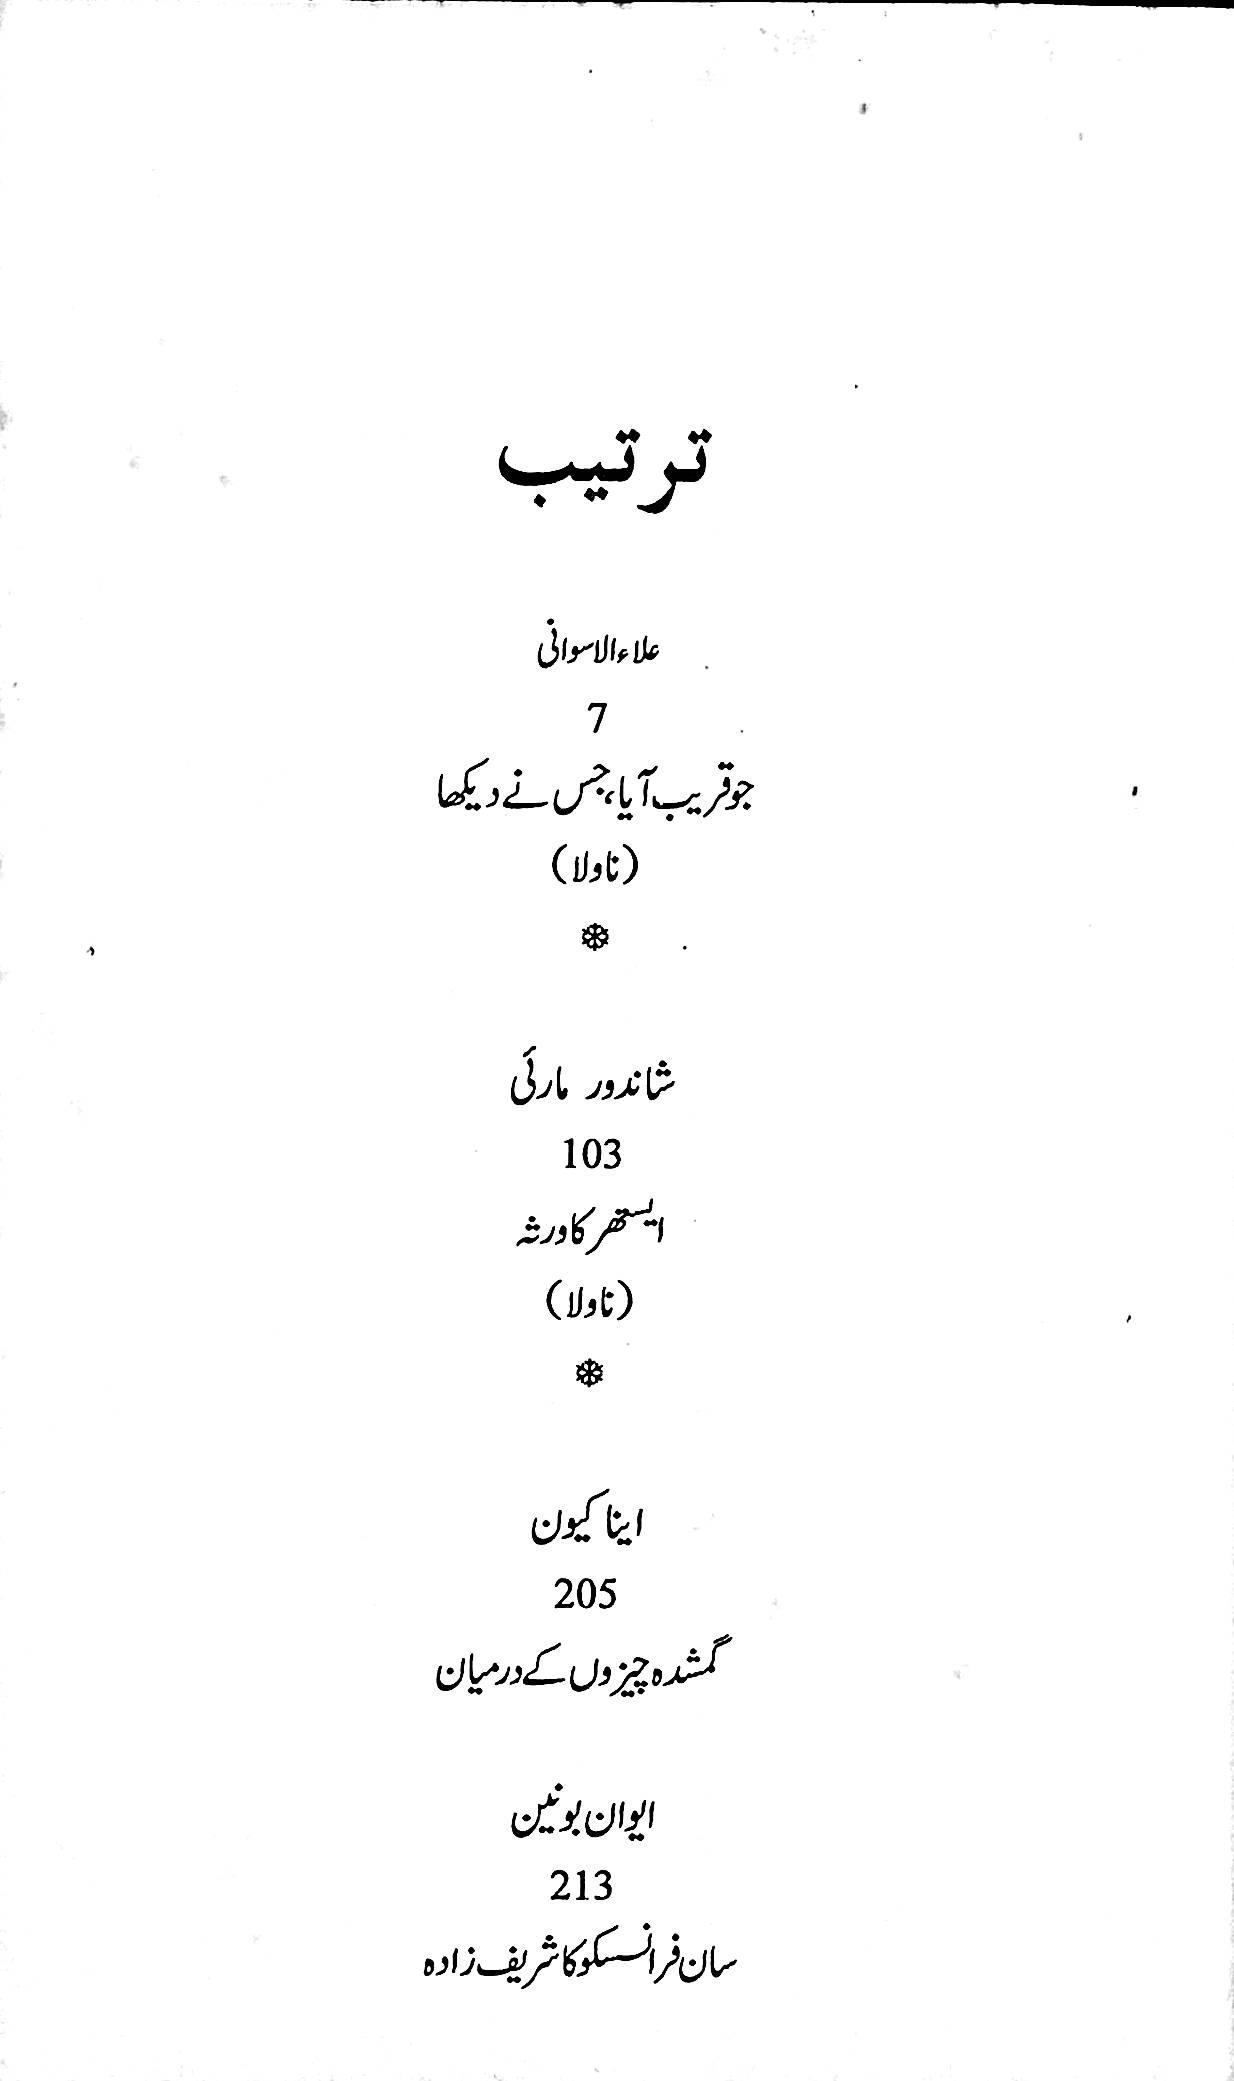 ترتیب
علاء الاسوانی
7
جو قریب آیا، جس نے دیکھا
(ناولا)
شاندور مارئی
103
ایستھر کا ورثہ
(ناولا)
اینا کیون
205
گمشدہ چیزوں کے درمیان
ایوان بونین
213
سان فرانسسکو کا شریف زادہ